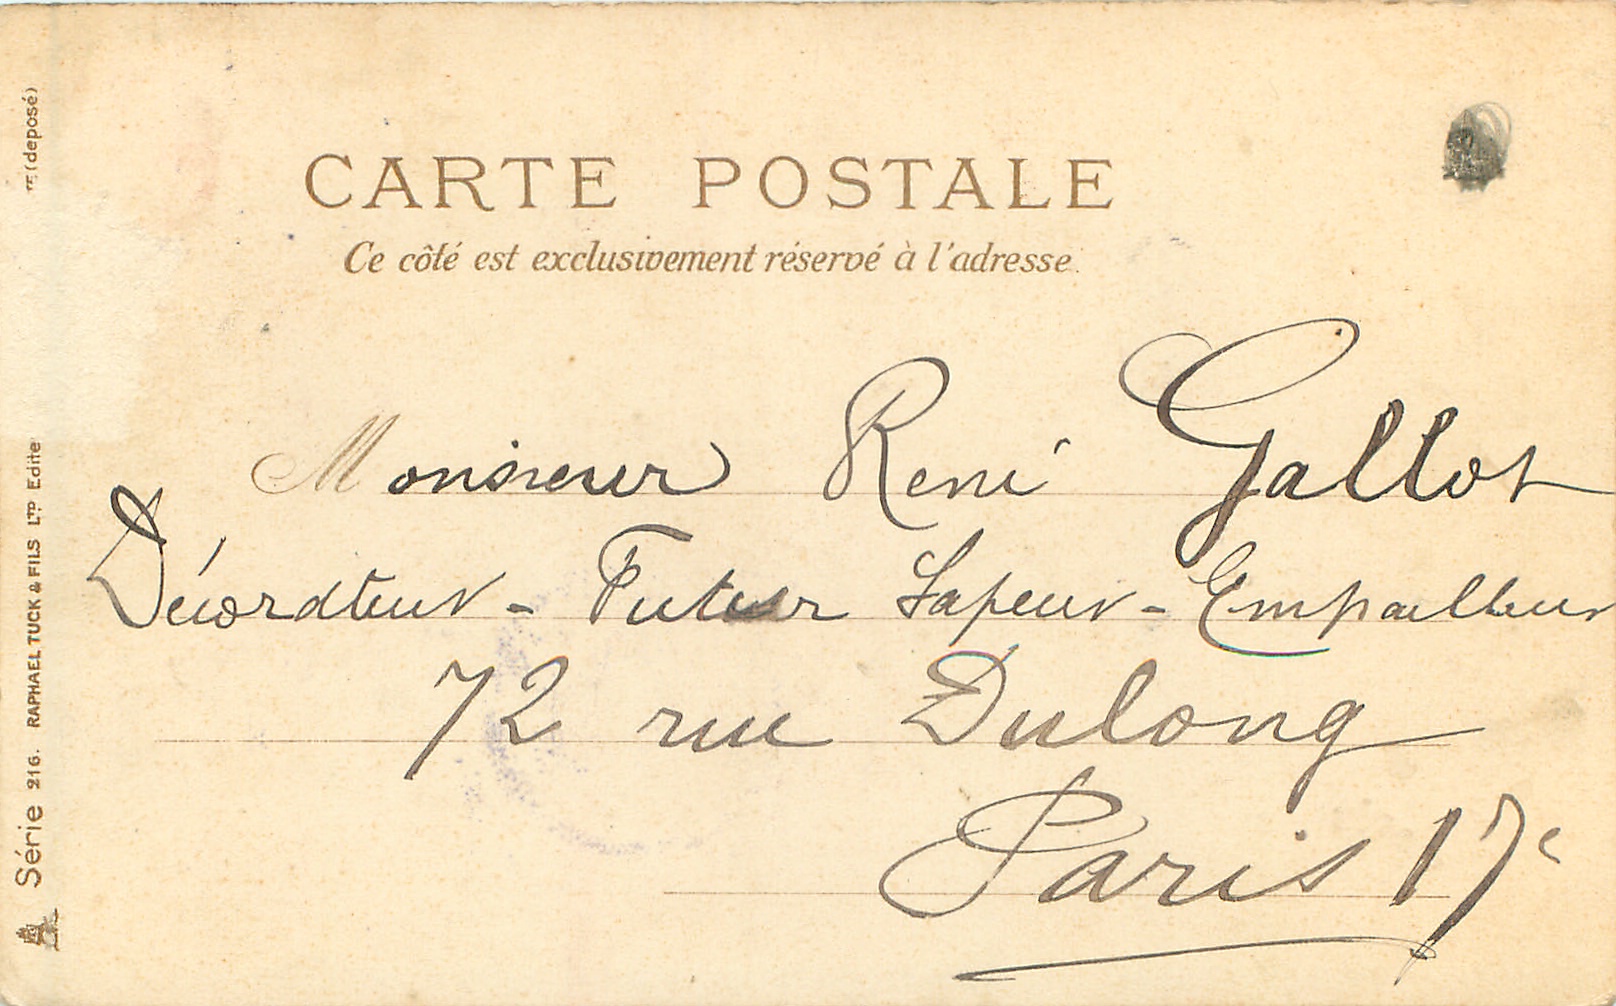 CARTE POSTALE
Ce côté est exclusivement réservé à l'adresse.
Monsieur René Gallot
Décorateur - Futur Sapeur - Empailleur
72 rue Dulong
Paris 17e
Série 216. RAPHAEL TUCK & FILS LTD Edite
(deposé)